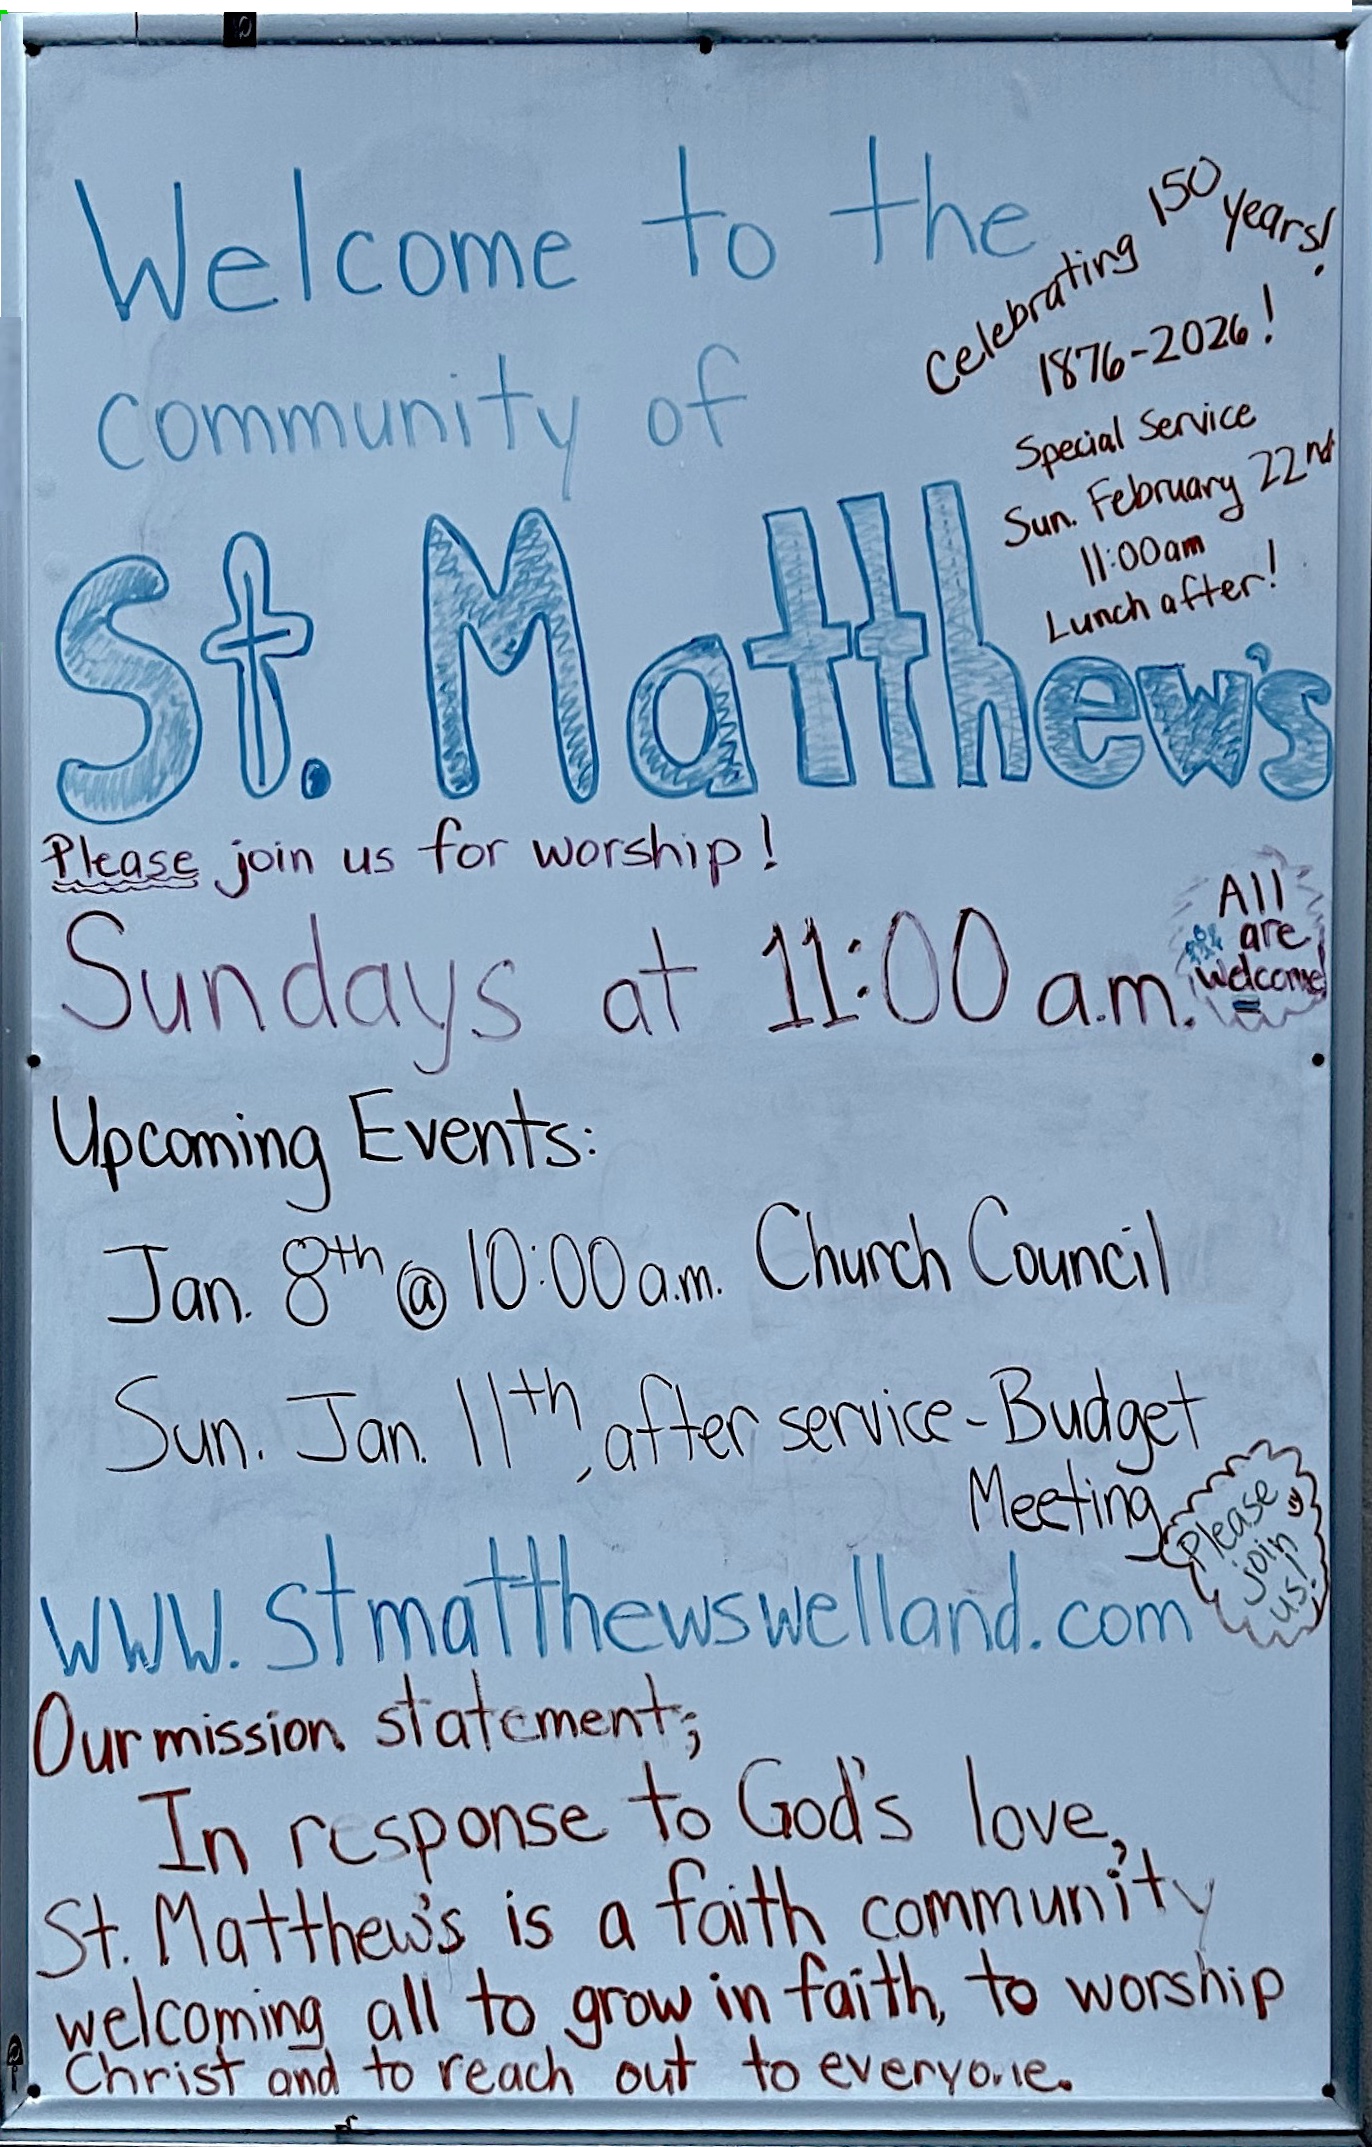 Welcome to the
community of
St. Matthew's
Celebrating 150 years!
1876-2026!
Special Service
Sun. February 22nd
11:00am
Lunch after!
Please join us for worship!
Sundays at 11:00 a.m.
All
are
welcome!
Upcoming Events:
Jan. 8th @ 10:00 a.m. Church Council
Sun. Jan. 11th, after service - Budget
Meeting
Please
join
us!
www.stmatthewswelland.com
Our mission statement;
In response to God's love,
St. Matthew's is a faith community
welcoming all to grow in faith, to worship
Christ and to reach out to everyone.